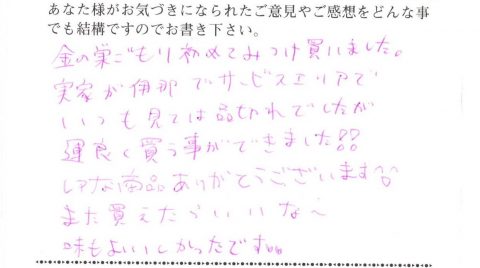 あなた様がお気づきになられたご意見やご感想をどんな事
でも結構ですのでお書き下さい。
金の巣ごもり初めてみつけ買いました。
実家が伊那でサービスエリアで
いつも見ては品切れでしたが
運良く買う事ができました!!
レアな商品ありがとうございます
また買えたらいいな〜
味もよいしかったです